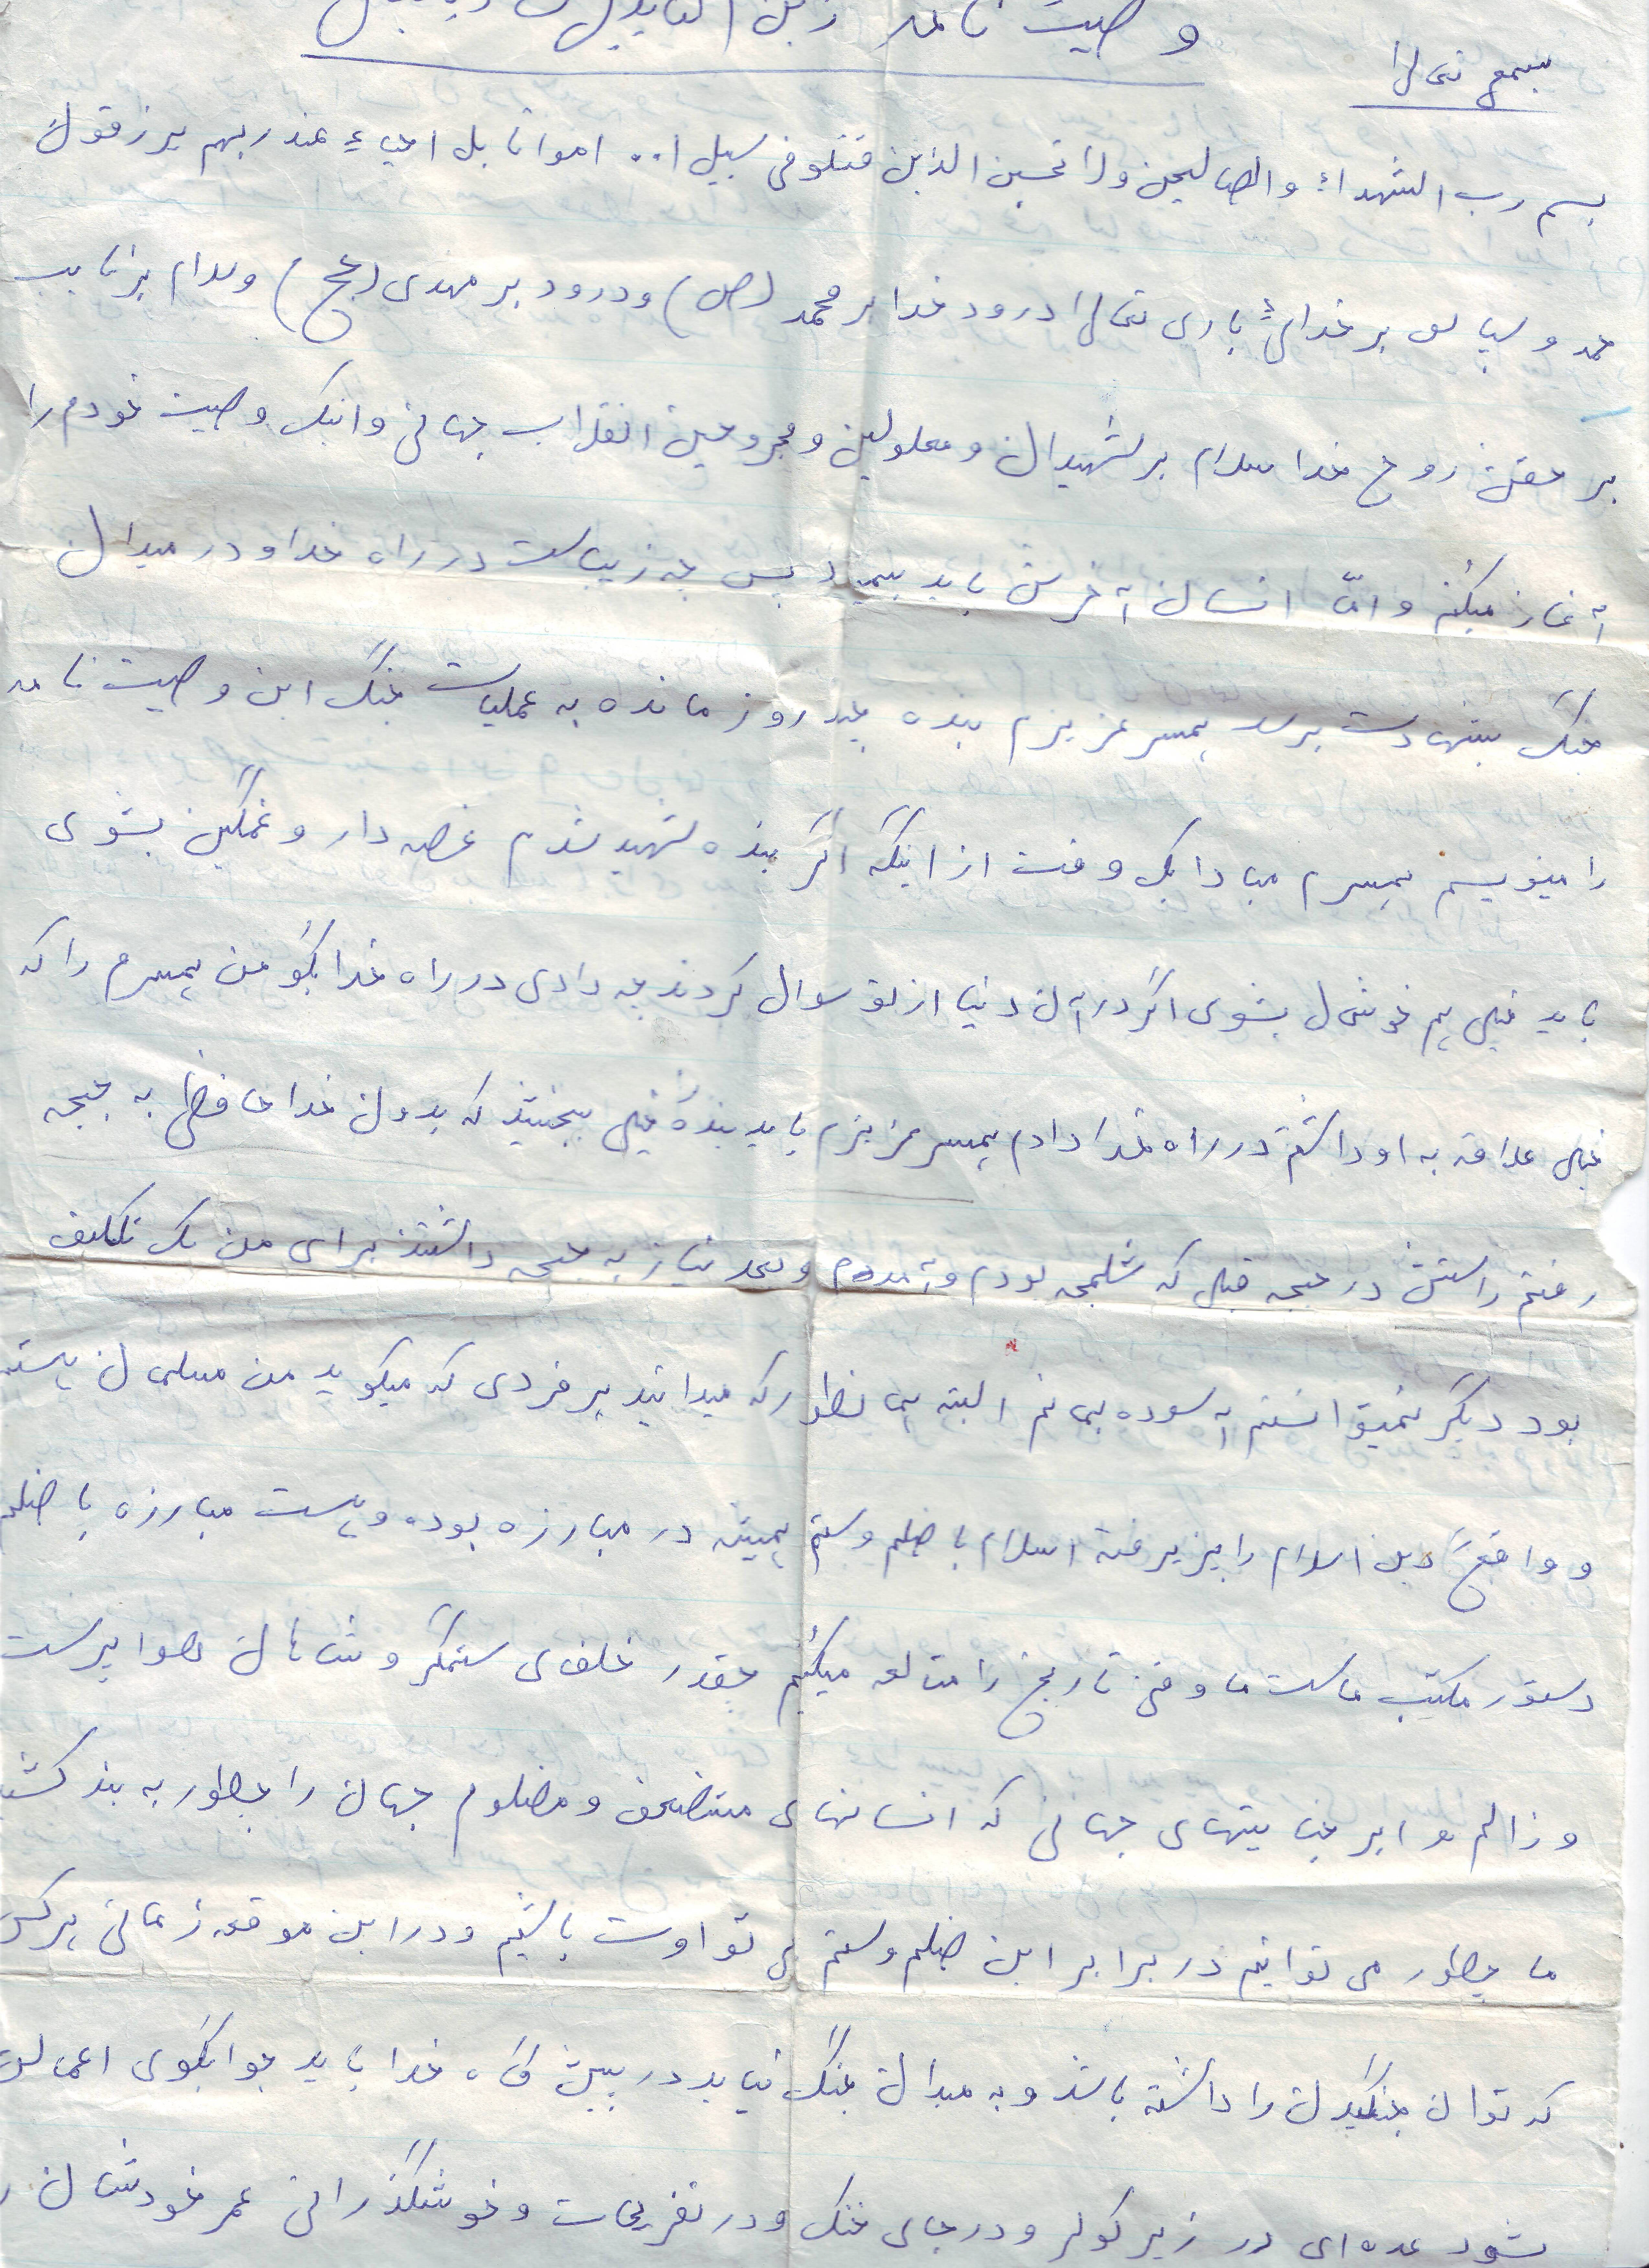 وصیت نامه زین العابدین
بسمع تعالی
بسم رب الشهداء والصالیحن ولا تحسبن الذین قتلو فی سبیل ا.. امواتا بل احیاء عند ربهم یرزقون
حمد و سپاس بر خدائی باری تعالی درود خدا بر محمد (ص) و درود بر مهدی (عج) و سلام بر نایب
بر حقش روح خدا سلام بر شهیدان و معلولین و مجروحین انقلاب جهانی و اینک وصیت خودم را
آغاز میکنم و امّا انسان آخرش باید بمیرد پس چه زیباست در راه خدا و در میدان
جنگ بشهادت برسد همسر عزیزم بنده چند روز مانده به عملیات جنگ این وصیت نامه
را مینویسم همسرم مبادا یک وقت از اینکه اگر بنده شهید شدم غصه دار و غمگین بشوی
باید خیلی هم خوشحال بشوی اگر در آن دنیا از تو سوال کردند چه دادی در راه خدا بگو من همسرم را که
خیلی علاقه به او داشتم در راه خدا دادم همسر عزیزم باید بنده را خیلی ببخشید که بدون خدا حافظی به جبحه
رفتم راستش در جبحه قبلی که شلمچه بودم و آمدم و بعد نیاز به جبحه داشتند برای من یک تکلیف
بود دیگر نمیتوانستم آسوده بمانم البته همانطور که میدانید هر فردی که میگوید من مسلمان هستم
و واقعاً دین اسلام را پزیرفته اسلام با ضلم و ستم همیشه در مبارزه بوده و هست مبارزه با ضلم
دستور مکتب ماست ما وقتی تاریخ را متالعه میکنیم چقدر خلفای ستمگر و شاهان هوا پرست
و زالم و ابر جنایتهای جهانی که انسانهای مستضعف و مضلوم جهان را چطور به بند کشید
ما چطور می توانیم در برابر این ضلم و ستم بی تواوت باشیم و در این موقعه زمانی هر کس
که توان جنگیدن را داشته باشد و به میدان جنگ نیاید در پیش گاه خدا باید جوابگوی اعمالش
شود عده ای در زیر کولر و در جای خنک و در تفریحات و خوشگذرانی عمر خودشان ر